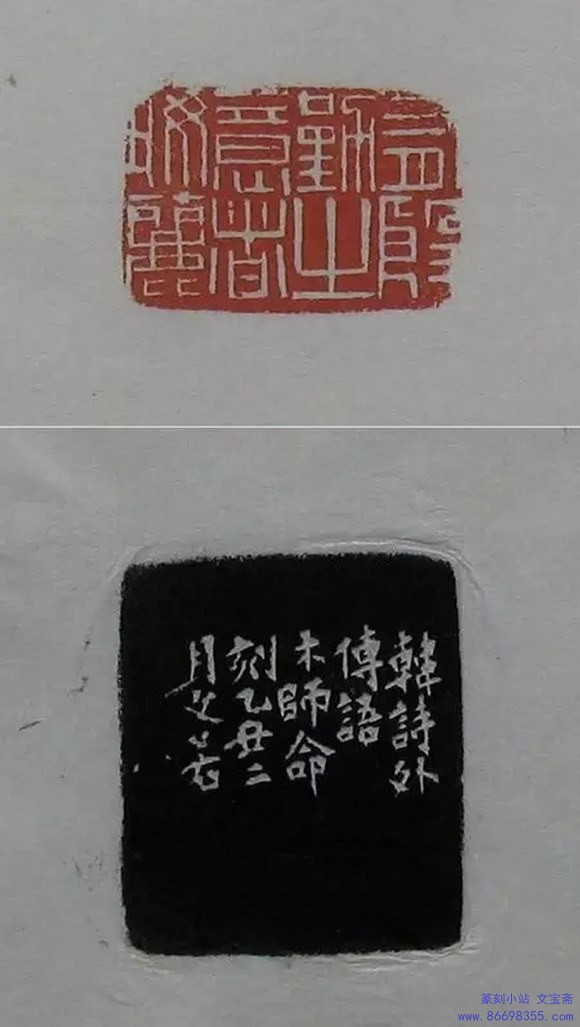 益
勤之
意者
韓詩外
傳語
木師命
刻乙丑二
月
篆刻小站 文宝斋
www.86698355.com